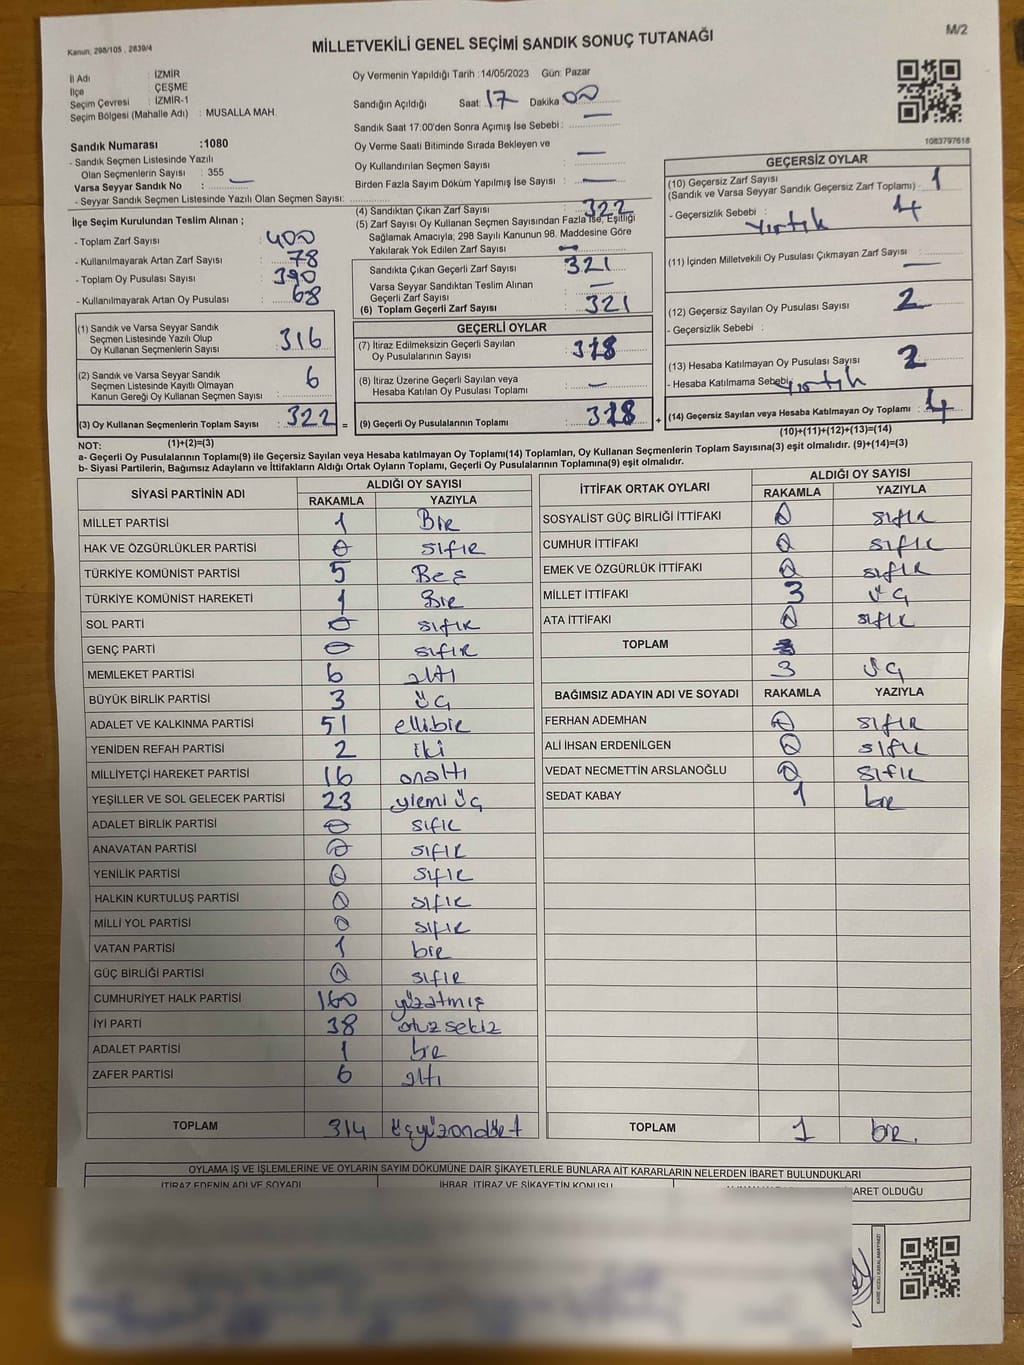 Kanun, 298/105 , 2839/4
MİLLETVEKİLİ GENEL SEÇİMİ SANDIK SONUÇ TUTANAĞI
M/2
İl Adı : İZMİR
İlçe : ÇEŞME
Seçim Çevresi : İZMİR-1
Seçim Bölgesi (Mahalle Adı) : MUSALLA MAH.
Sandık Numarası :1080
- Sandık Seçmen Listesinde Yazılı
Olan Seçmenlerin Sayısı : 355
Varsa Seyyar Sandık No : —
- Seyyar Sandık Seçmen Listesinde Yazılı Olan Seçmen Sayısı:
Oy Vermenin Yapıldığı Tarih :14/05/2023 Gün: Pazar
Sandığın Açıldığı Saat: 17 Dakika: 00
Sandık Saat 17:00'den Sonra Açımış İse Sebebi : —
Oy Verme Saati Bitiminde Sırada Bekleyen ve
Oy Kullandırılan Seçmen Sayısı : —
Birden Fazla Sayım Döküm Yapılmış İse Sayısı : —
1083797618
İlçe Seçim Kurulundan Teslim Alınan ;
- Toplam Zarf Sayısı : 400
- Kullanılmayarak Artan Zarf Sayısı : 78
- Toplam Oy Pusulası Sayısı : 390
- Kullanılmayarak Artan Oy Pusulası : 68
(1) Sandık ve Varsa Seyyar Sandık
Seçmen Listesinde Yazılı Olup
Oy Kullanan Seçmenlerin Sayısı : 316
(2) Sandık ve Varsa Seyyar Sandık
Seçmen Listesinde Kayıtlı Olmayan
Kanun Gereği Oy Kullanan Seçmen Sayısı : 6
(3) Oy Kullanan Seçmenlerin Toplam Sayısı : 322 =
(4) Sandıktan Çıkan Zarf Sayısı : 322
(5) Zarf Sayısı Oy Kullanan Seçmen Sayısından Fazla İse, Eşitliği
Sağlamak Amacıyla, 298 Sayılı Kanunun 98. Maddesine Göre
Yakılarak Yok Edilen Zarf Sayısı : —
Sandıkta Çıkan Geçerli Zarf Sayısı : 321
Varsa Seyyar Sandıktan Teslim Alınan
Geçerli Zarf Sayısı : —
(6) Toplam Geçerli Zarf Sayısı : 321
GEÇERLİ OYLAR
(7) İtiraz Edilmeksizin Geçerli Sayılan
Oy Pusulalarının Sayısı : 318
(8) İtiraz Üzerine Geçerli Sayılan veya
Hesaba Katılan Oy Pusulası Toplamı : —
(9) Geçerli Oy Pusulalarının Toplamı : 318 +
GEÇERSİZ OYLAR
(10) Geçersiz Zarf Sayısı
(Sandık ve Varsa Seyyar Sandık Geçersiz Zarf Toplamı) : 1
- Geçersizlik Sebebi : Yırtık
(11) İçinden Milletvekili Oy Pusulası Çıkmayan Zarf Sayısı : —
(12) Geçersiz Sayılan Oy Pusulası Sayısı : 2
- Geçersizlik Sebebi :
(13) Hesaba Katılmayan Oy Pusulası Sayısı : 2
- Hesaba Katılmama Sebebi: Yırtık
(14) Geçersiz Sayılan veya Hesaba Katılmayan Oy Toplamı : 4
NOT: (1)+(2)=(3) (10)+(11)+(12)+(13)=(14)
a- Geçerli Oy Pusulasının Toplamı(9) ile Geçersiz Sayılan veya Hesaba katılmayan Oy Toplamı(14) Toplamları, Oy Kullanan Seçmenlerin Toplam Sayısına(3) eşit olmalıdır. (9)+(14)=(3)
b- Siyasi Partilerin, Bağımsız Adayların ve İttifakların Aldığı Ortak Oyların Toplamı, Geçerli Oy Pusulalarının Toplamına(9) eşit olmalıdır.
SİYASİ PARTİNİN ADI ALDIĞI OY SAYISI
RAKAMLA YAZIYLA
MİLLET PARTİSİ 1 Bir
HAK VE ÖZGÜRLÜKLER PARTİSİ 0 sıfır
TÜRKİYE KOMÜNİST PARTİSİ 5 Beş
TÜRKİYE KOMÜNİST HAREKETİ 1 Bir
SOL PARTİ 0 sıfır
GENÇ PARTİ 0 sıfır
MEMLEKET PARTİSİ 6 altı
BÜYÜK BİRLİK PARTİSİ 3 üç
ADALET VE KALKINMA PARTİSİ 51 ellibir
YENİDEN REFAH PARTİSİ 2 iki
MİLLİYETÇİ HAREKET PARTİSİ 16 onaltı
YEŞİLLER VE SOL GELECEK PARTİSİ 23 yiemi üç
ADALET BİRLİK PARTİSİ 0 sıfır
ANAVATAN PARTİSİ 0 sıfır
YENİLİK PARTİSİ 0 sıfır
HALKIN KURTULUŞ PARTİSİ 0 sıfır
MİLLİ YOL PARTİSİ 0 sıfır
VATAN PARTİSİ 1 bir
GÜÇ BİRLİĞİ PARTİSİ 0 sıfır
CUMHURİYET HALK PARTİSİ 160 yüzatmış
İYİ PARTİ 38 otuz sekiz
ADALET PARTİSİ 1 bir
ZAFER PARTİSİ 6 altı
TOPLAM 314 üçyüzondört
İTTİFAK ORTAK OYLARI ALDIĞI OY SAYISI
RAKAMLA YAZIYLA
SOSYALİST GÜÇ BİRLİĞİ İTTİFAKI 0 sıfır
CUMHUR İTTİFAKI 0 sıfır
EMEK VE ÖZGÜRLÜK İTTİFAKI 0 sıfır
MİLLET İTTİFAKI 3 üç
ATA İTTİFAKI 0 sıfır
TOPLAM
3 üç
BAĞIMSIZ ADAYIN ADI VE SOYADI RAKAMLA YAZIYLA
FERHAN ADEMHAN 0 sıfır
ALİ İHSAN ERDENİLGEN 0 sıfır
VEDAT NECMETTİN ARSLANOĞLU 0 sıfır
SEDAT KABAY 1 bir
TOPLAM 1 bir.
OYLAMA İŞ VE İŞLEMLERİNE VE OYLARIN SAYIM DÖKÜMÜNE DAİR ŞİKAYETLERLE BUNLARA AİT KARARLARIN NELERDEN İBARET BULUNDUKLARI
İTİRAZ EDENİN ADI VE SOYADI İHBAR, İTİRAZ VE ŞİKAYETİN KONUSU BARET OLDUĞU